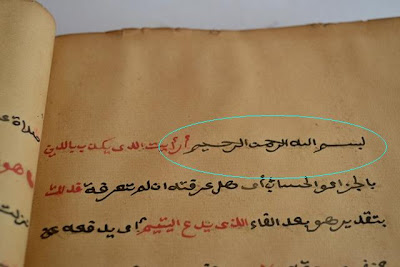 بسم الله الرحمن الرحيم أرأيت الذى يكذب بالدين
بالجزاء والحساب أى هل عرفته ان لم تعرفه فذلك
بتقدير هو بعد الفاء الذى يدع اليتيم أى يدفعه عن